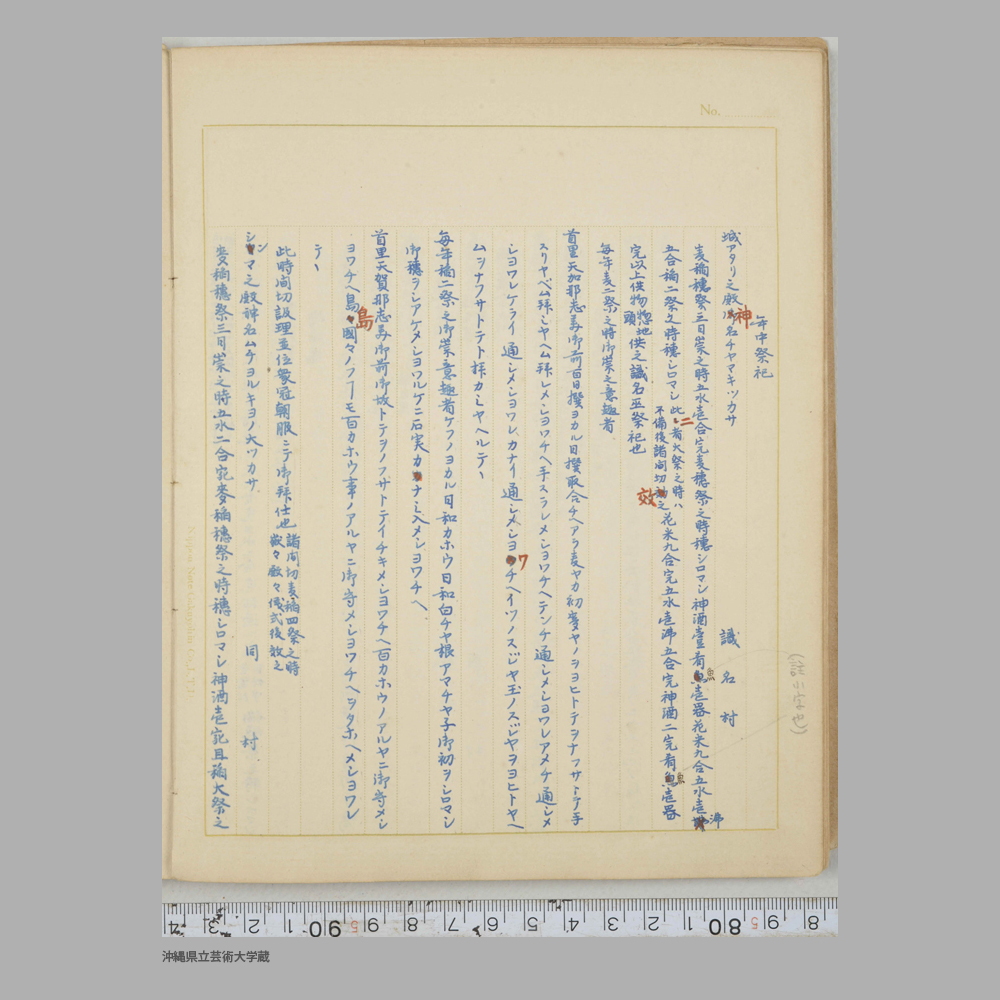 No.
年中祭祀
城アタリ之殿神名チヤマキツカサ 識名村
麦稲穂祭三日崇之時五水壱合完麦穂祭之時穂シロマシ神酒壱完肴魚壱器花米九合五水壱沸
五合稲二祭之時穂シロマシ此二者大祭之時ハ不備後諸間切効之花米九合完五水壱沸五合完神酒二完肴魚壱器
完以上供物惣地頭供之識名巫祭祀也
毎年麦二祭之時御崇之意趣者
首里天加那志美御前百日撰ヨカル日撰取合チヘアラ麦ヤカ初麦ヤノシヨヒトテヲナフサトテ手
スリヤベム拝シヤヘム拝レメシヨワチヘ手スラレメシヨワチヘテンチ通シメシヨワレアメチ通シメ
シヨワレケライ通シメシヨワレカナイ通シメシヨワチヘイツノスジヤ玉ノスジヤヲヨヒトヤヘ
ムヲナフサトテト拝カミヤヘルテヽ
毎年稲二祭之御崇意趣者ケフノヨカル日和カホウ日和白チヤ根アマチヤ子御初ヲシロマシ
御穂ヲシアケメシヨワルゲニ石実カナミ入メシヨワチヘ
首里天賀那志美御前御城トテヲノフサトテイチキメシヨワチヘ百カホウノアルヤニ御守メシ
ヨワチヘ島島國々ノフーモ百カホウ事ノアルヤニ御守メシヨワチヘヲタホヘメシヨワレ
テヽ
此時間切詖理並位衆冠朝服ニテ御拝仕也諸間切麦稲四祭之時嶽々殿々儀式後效之
シマ之殿神名ムチヨルキヨノ大ツカサ 同村
麦稲穂祭三日崇之時五水二合完麥稲穂祭之時穂シロマシ神酒壱完且稲大祭之
沖縄県立芸術大学蔵